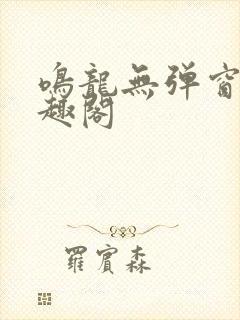 鳴龍無弹窗
趣閣
羅賓森